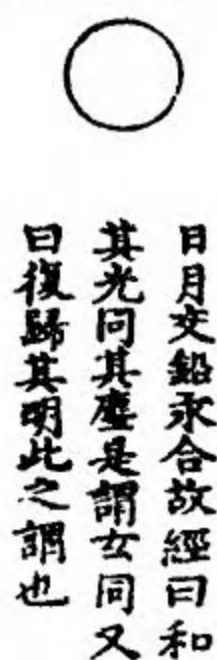 日月交鉛汞合故經曰和
其光同其塵是謂玄同又
曰復歸其明此之謂也